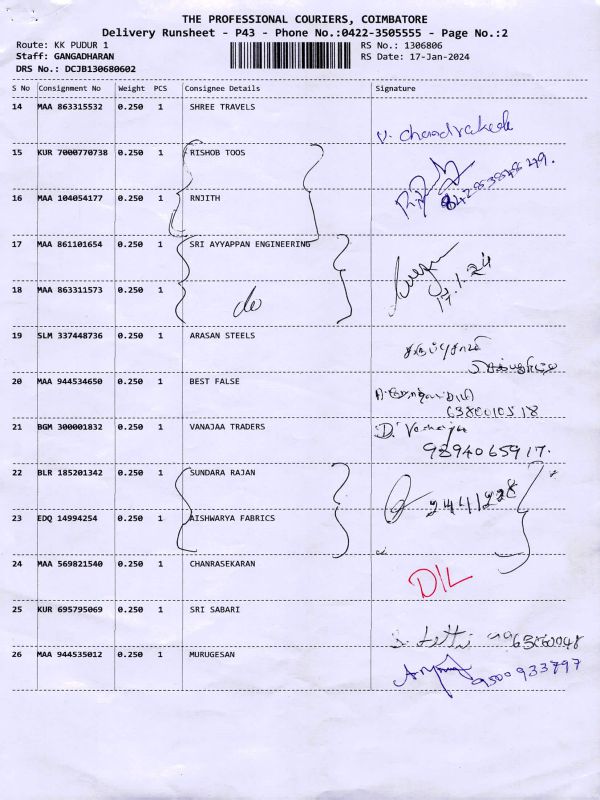 THE PROFESSIONAL COURIERS, COIMBATORE
Delivery Runsheet - P43 - Phone No.:0422-3505555 - Page No.:2
Route: KK PUDUR 1 RS No.: 1306806
Staff: GANGADHARAN RS Date: 17-Jan-2024
DRS No.: DCJB130680602
S No Consignment No Weight PCS Consignee Details Signature
14 MAA 863315532 0.250 1 SHREE TRAVELS
15 KUR 7000770738 0.250 1 RISHOB TOOS
16 MAA 104054177 0.250 1 RNJITH
17 MAA 861101654 0.250 1 SRI AYYAPPAN ENGINEERING
17.1.24
18 MAA 863311573 0.250 1 do
19 SLM 337448736 0.250 1 ARASAN STEELS
20 MAA 944534650 0.250 1 BEST FALSE
21 BGM 300001832 0.250 1 VANAJAA TRADERS
9894065917.
22 BLR 185201342 0.250 1 SUNDARA RAJAN
2441228
23 EDQ 14994254 0.250 1 AISHWARYA FABRICS
24 MAA 569821540 0.250 1 CHANRASEKARAN D/L
25 KUR 695795069 0.250 1 SRI SABARI
26 MAA 944535012 0.250 1 MURUGESAN
9500933797